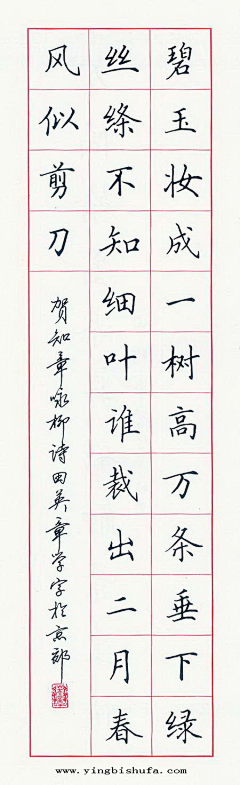 碧玉妆成一树高万条垂下绿
丝绦不知细叶谁裁出二月春
风似剪刀
贺知章咏柳诗田英章学字于京都
www.yingbishufa.com